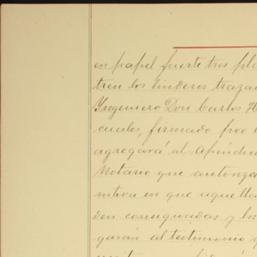 en papel fuerte tres pla
tren los linderos traza
Ingeniero Don Carlos H
cuales, firmado por
agregará al Apéndice
Notario que autoriza
mitiva en que aquello
den consignadas y los
garán al testimonio